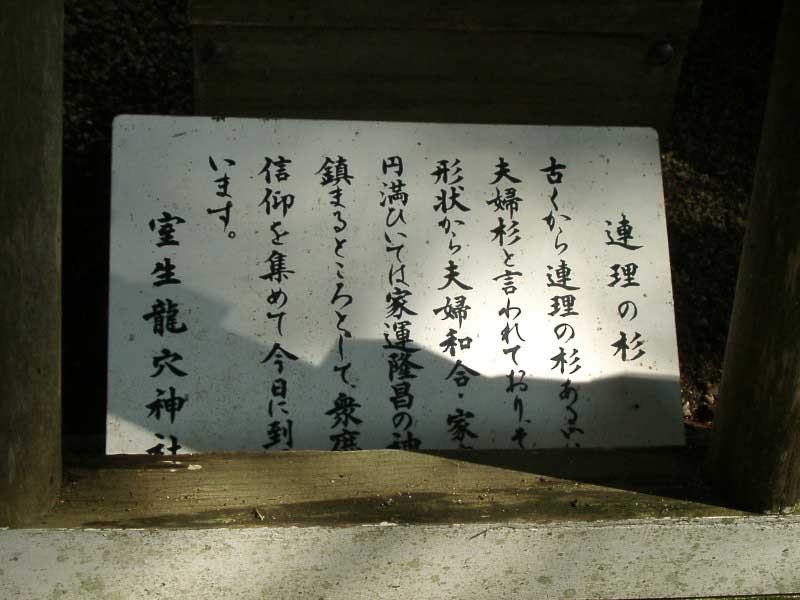 連理の杉
古くから連理の杉ある
夫婦杉と言われており、そ
形状から夫婦和合・家
円満ひいては家運隆昌の神
鎮まるところとして、衆庶
信仰を集めて今日に到
います。
室生龍穴神社